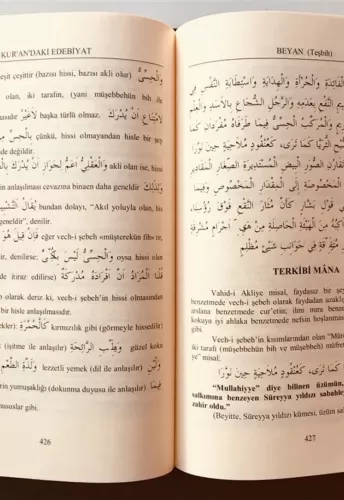 KUR'AN'DAKİ EDEBİYAT
وَالْحِسِّىُّ eşit çeşittir (bazısı hissi, bazısı akli olur)
olan, iki tarafın, (yani müşebbehün bih ile
لِامْتِنَاعِ أَنْ يُدْرَكَ başka türlü olmaz. لَا غَيْرُ
بِالْحِسِّ مِنْ çünkü, hissi olmayandan hisle bir şey
de değildir.
وَالْعَقْلِىُّ أَعَمُّ لِجَوَازِ أَنْ يُدْرَكَ akli olan ise, hissi
in anlaşılması cevazına binaen daha geneldir. وَلِذَٲلِكَ
يُقَالُ bundan dolayı, "Akıl yoluyla olan, his
geneldir", denilir.
فَإِنْ قِيلَ هُوَ eğer vech-i şebeh «müşterekün fih» tir,
denilirse; وَالْحِسِّىُّ لَيْسَ بِكُلِّىٍّ oysa hissi olan
de itiraz edilirse) قُلْنَا الْمُرَادُ أَنَّ أَفْرَادَهُ مُدْرَكَةٌ
olarak deriz ki, vech-i şebeh'in hissi olmasından
bir hisle anlaşılmasıdır.
ekler): كَالْحُمْرَةِ kırmızılık gibi (görmeyle hissedilir)
(işitme ile anlaşılır) الرَّائِحَةِ güzel koku
anlaşılır) وَلَذَّةِ الطَّعْمِ lezzetli yemek (dil ile anlaşılır)
in yumuşaklığı (dokunma duyusu ile anlaşılır) فِيمَا
hususlar gibi.
426
BEYAN (Teşbih)
الْفَائِدَةِ وَالْجُرْأَةِ وَالْهِدَايَةِ وَاسْتِطَابَةِ النَّفْسِ فِي
النَّفْعِ بِعَدَمِهِ وَالرَّجُلِ الشُّجَاعِ بِالْأَسَدِ وَالْعِلْمِ
وَالْمُرَكَّبُ الْحِسِّىُّ فِيمَا طَرَفَاهُ مُفْرَدَانِ كَمَا
الثُّرَيَّا كَمَا تَرَى، كَعُنْقُودِ مُلَّاحِيَةٍ حِينَ نَوَّرَا
الصُّوَرِ الْبِيضِ الْمُسْتَدِيرَةِ الصِّغَارِ الْمَقَادِيرِ
الْمَخْصُوصَةِ إِلَى الْمِقْدَارِ الْمَخْصُوصِ وَفِيمَا
كَأَنَّ مُثَارَ النَّقْعِ فَوْقَ رُؤُسِنَا،
مِنَ الْهَيْئَةِ الْحَاصِلَةِ مِنْ
مُتَفَرِّقَةٍ فِي جَوَانِبِ شَيْءٍ مُظْلِمٍ
TERKİBİ MÂNA
Vahid-i Akliye misal, faydasız bir şey
benzetmede vech-i şebeh olarak faydadan uzaklı
arslana benzetmede cur'etin; ilmi nura benzet
kokuyu iyi ahlaka benzetmede nefsin hoşlanması
gibi.
Vech-i şebeh'in kısımlarından olan "Müre
iki tarafı (müşebbehün bih ve müşebbeh) müfret
ye" misal:
كَمَا تَرَى، كَعُنْقُودِ مُلَّاحِيَةٍ حِينَ نَوَّرَا
"Mullahiyye" diye bilinen üzümün,
salkımına benzeyen Süreyya yıldızı sabahley
zahir oldu."
(Beyitte, Süreyya yıldızı kümesi, üzüm salk
427